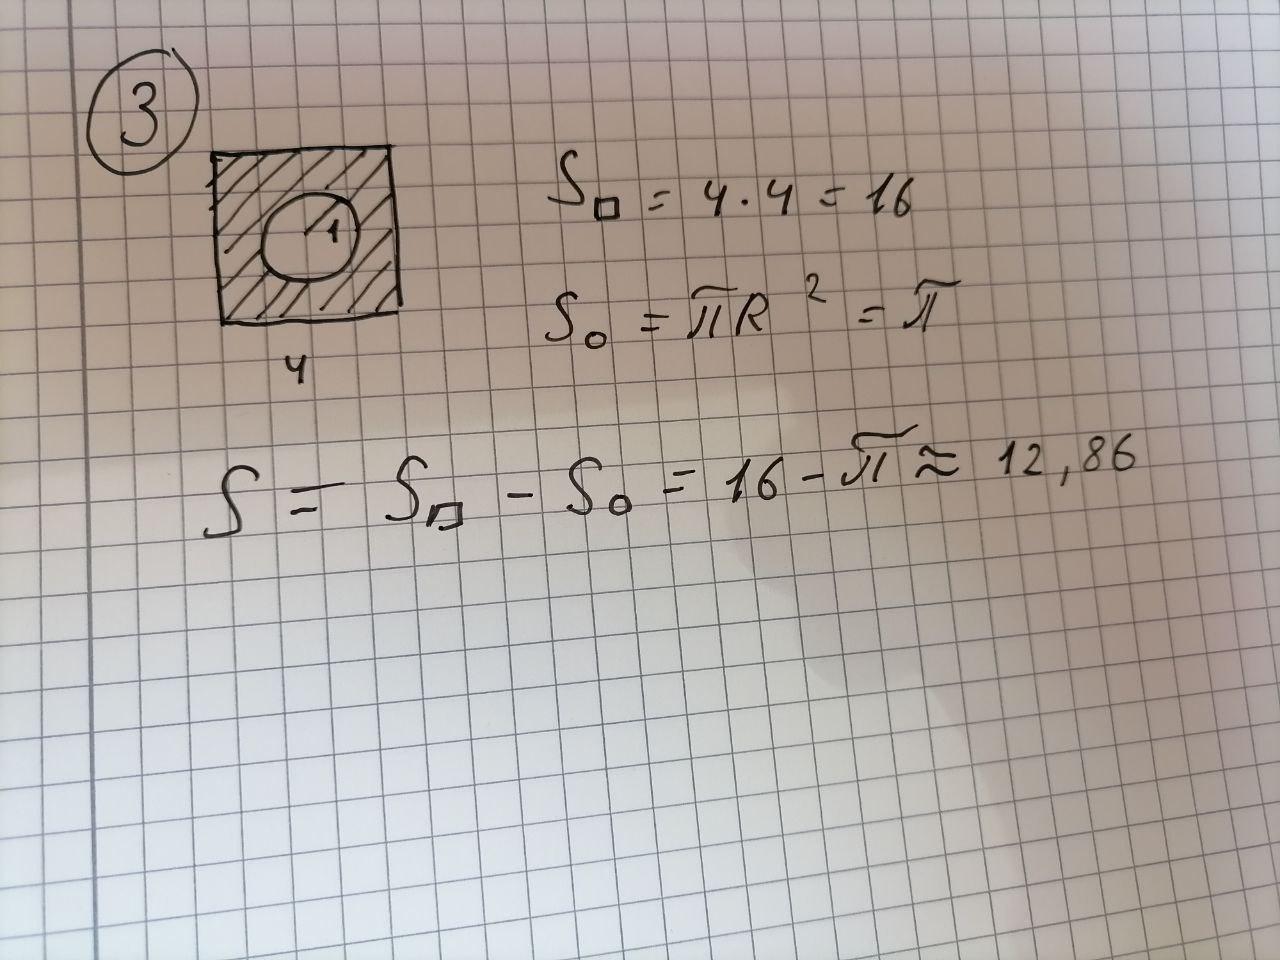 3
1
4
S□ = 4·4 = 16
S○ = πR² = π
S = S□ - S○ = 16 - π ≈ 12,86